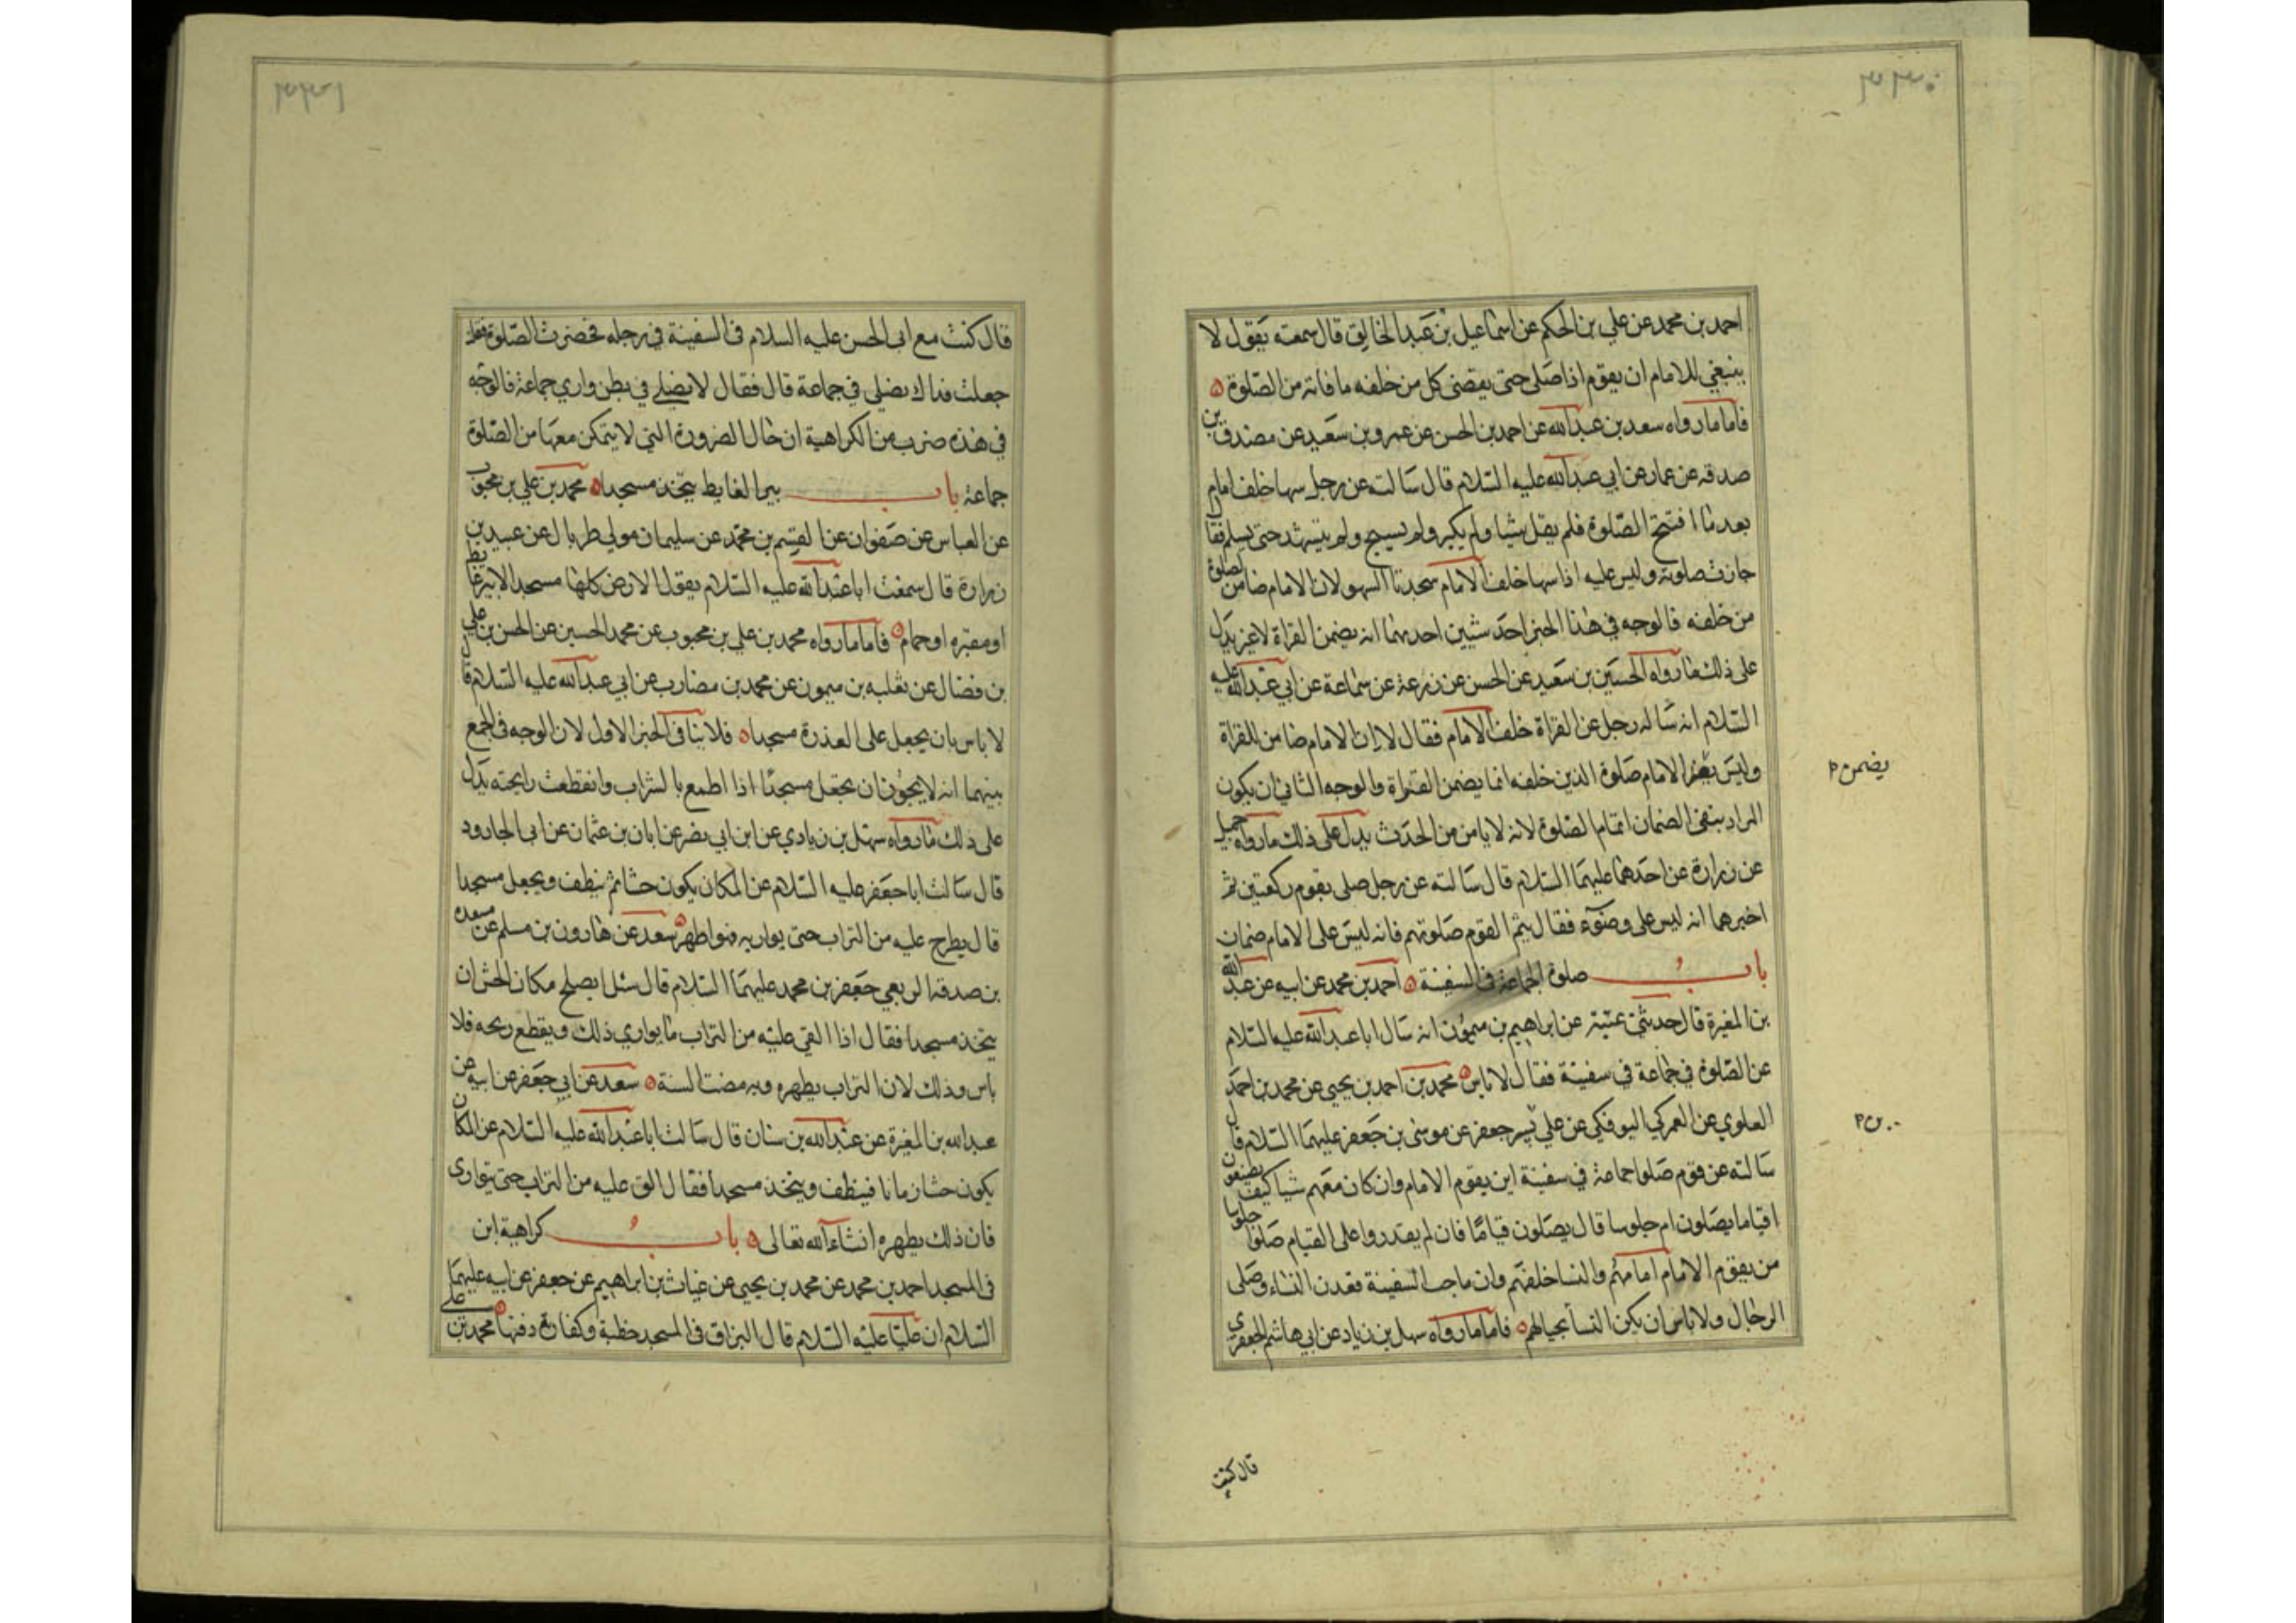 ٣٣٠
احمد بن محمد عن علي بن الحكم عن اسماعيل بن عبد الخالق قال سمعته يقول لا
ينبغي للامام ان يقوم اذا صلى حتى يقضى كل من خلفه ما فاته من الصلوة
فاما ما رواه سعد بن عبد الله عن احمد بن الحسن عن عمرو بن سعيد عن مصدق بن
صدقه عن عمار عن ابي عبد الله عليه السلام قال سالته عن رجل سها خلف امام
بعد ما افتتح الصلوة فلم يقل شيئا ولم يكبر ولم يسبح ولم يتشهد حتى يسلم فقال
جازت صلوته وليس عليه اذا سها خلف الامام سجدتا السهو لان الامام ضامن لصلوة
من خلفه فالوجه في هذا الخبر احد شيئين احدهما انه يضمن القراة لاغير يدل
على ذلك ما رواه الحسين بن سعيد عن الحسن عن زرعة عن سماعة عن ابي عبد الله عليه
السلام انه ساله رجل عن القراة خلف الامام فقال لا ان الامام ضامن للقراة
وليس يضمن الامام صلوة الذين خلفه انما يضمن القراة والوجه الثاني ان يكون
يضمن م
المراد بنفى الضمان اتمام الصلوة لانه لا يامن من الحدث يدل على ذلك ما رواه جميل
عن زرارة عن احدهما عليهما السلام قال سالته عن رجل صلى بقوم ركعتين ثم
اخبرهما انه ليس على وضوء فقال يتم القوم صلوتهم فانه ليس على الامام ضمان
باب صلوة الجماعة في السفينة احمد بن محمد عن ابيه عن عبد الله
بن المغيرة قال حدثني عتيبة عن ابراهيم بن ميمون انه سال ابا عبد الله عليه السلام
عن الصلوة في جماعة في سفينة فقال لا باس محمد بن احمد بن يحيى عن محمد بن احمد
العلوي عن العمركي البوفكي عن علي بن جعفر عن موسى بن جعفر عليهما السلام قال
سالته عن قوم صلوا جماعة في سفينة اين يقوم الامام وان كان معهم شيا كيف يصنعون
اقياما يصلون ام جلوسا قال يصلون قياما فان لم يقدروا على القيام صلوا جلوسا
من يقوم الامام امامهم والنسا خلفهم وان ماجت السفينة قعدن النساء وصلى
الرجال ولا باس ان يكن النسا بحيالهم فاما ما رواه سهل بن زياد عن ابي هاشم الجعفري
قال كنت
٣٣١
قال كنت مع ابي الحسن عليه السلام في السفينة في دجله فحضرت الصلوة فقلت
جعلت فداك يصلي في جماعة قال فقال لا يصلي في بطن واري جماعة فالوجه
في هذه ضرب من الكراهية ان حال الضرورة التي لا يتمكن معها من الصلوة
جماعة باب بير الغايط يتخذ مسجدا محمد بن علي بن محبوب
عن العباس عن صفوان عن القسم بن محمد عن سليمان مولى طربال عن عبيد بن
زرارة قال سمعت ابا عبد الله عليه السلام يقول الارض كلها مسجد الا بير غايط
او مقبره او حمام فاما ما رواه محمد بن علي بن محبوب عن محمد الحسين عن الحسن بن علي
بن فضال عن ثعلبه بن ميمون عن محمد بن مضارب عن ابي عبد الله عليه السلام قال
لا باس بان يجعل على العذرة مسجدا فلا ينافى الخبر الاول لان الوجه في الجمع
بينهما انه لا يجوز ان يجعل مسجدا اذا اطمع بالشراب وانقطعت رايحته يدل
على ذلك ما رواه سهل بن زيادي عن ابن ابي نضر عن ابان بن عثمان عن ابي الجارود
قال سالت ابا جعفر عليه السلام عن المكان يكون حشا ثم ينظف ويجعل مسجدا
قال يطرح عليه من التراب حتى يواريه فهو اطهر سعد عن هارون بن مسلم عن مسعدة
بن صدقة الربعي جعفر بن محمد عليهما السلام قال سئل ايصلح مكان الحش ان
يتخذ مسجدا فقال اذا القي عليه من التراب ما يواري ذلك ويقطع ريحه فلا
باس وذلك لان التراب يطهره وبه مضت السنة سعد عن ابي جعفر عن ابيه عن
عبد الله بن المغيرة عن عبد الله بن سنان قال سالت ابا عبد الله عليه السلام عن المكان
يكون حشا زمانا فينظف ويتخذ مسجدا فقال الق عليه من التراب حتى يتوارى
فان ذلك يطهره انشاء الله تعالى باب كراهية ابن
في المسجد احمد بن محمد عن محمد بن يحيى عن غياث بن ابراهيم عن جعفر عن ابيه عليهما
السلام ان عليا عليه السلام قال البزاق في المسجد خطية وكفارته دفنها محمد بن علي